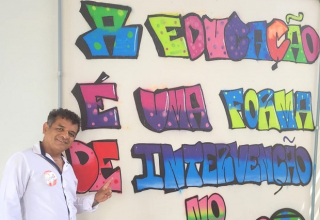 A EDUCAÇÃO
É UMA FORMA
DE INTERVENÇÃO
NO